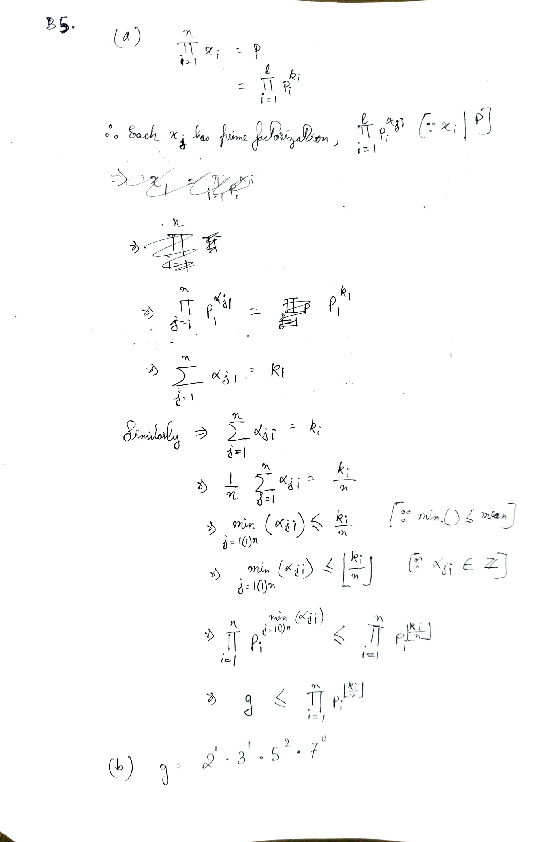 B5.
(a) ∏_{i=1}^{n} x_i = P
= ∏_{i=1}^{l} P_i^{k_i}
∴ Each x_j has prime factorization, ∏_{i=1}^{l} P_i^{α_{ji}} [∵ x_i | P]
⇒ ∏_{j=1}^{n} P_1^{α_{j1}} = P_1^{k_1}
⇒ ∑_{j=1}^{n} α_{j1} = k_1
Similarly ⇒ ∑_{j=1}^{n} α_{ji} = k_i
⇒ 1/n ∑_{j=1}^{n} α_{ji} = k_i/n
⇒ min_{j=1(1)n} (α_{ji}) ≤ k_i/n [∵ min.() ≤ mean]
⇒ min_{j=1(1)n} (α_{ji}) ≤ ⌊k_i/n⌋ [∵ α_{ji} ∈ Z]
⇒ ∏_{i=1}^{n} P_i^{min_{j=1(1)n} (α_{ji})} ≤ ∏_{i=1}^{n} P_i^{⌊k_i/n⌋}
⇒ g ≤ ∏_{i=1}^{n} P_i^{⌊k_i/n⌋}
(b) g = 2^1 · 3^1 · 5^2 · 7^0